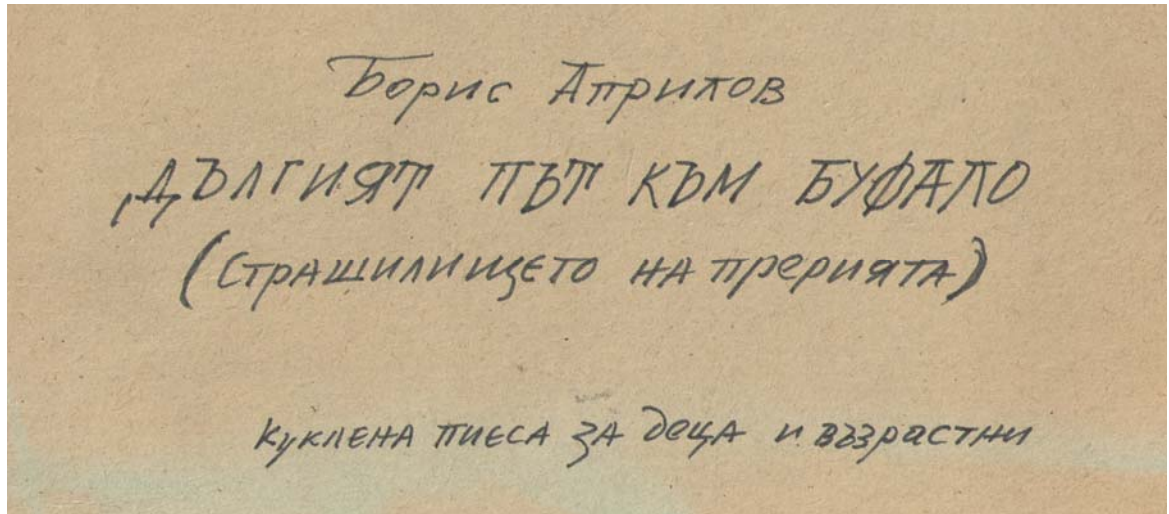 Борис Априлов
ДЪЛГИЯТ ПЪТ КЪМ БУФАЛО
(СТРАШИЛИЩЕТО НА ПРЕРИЯТА)
Куклена пиеса за деца и възрастни